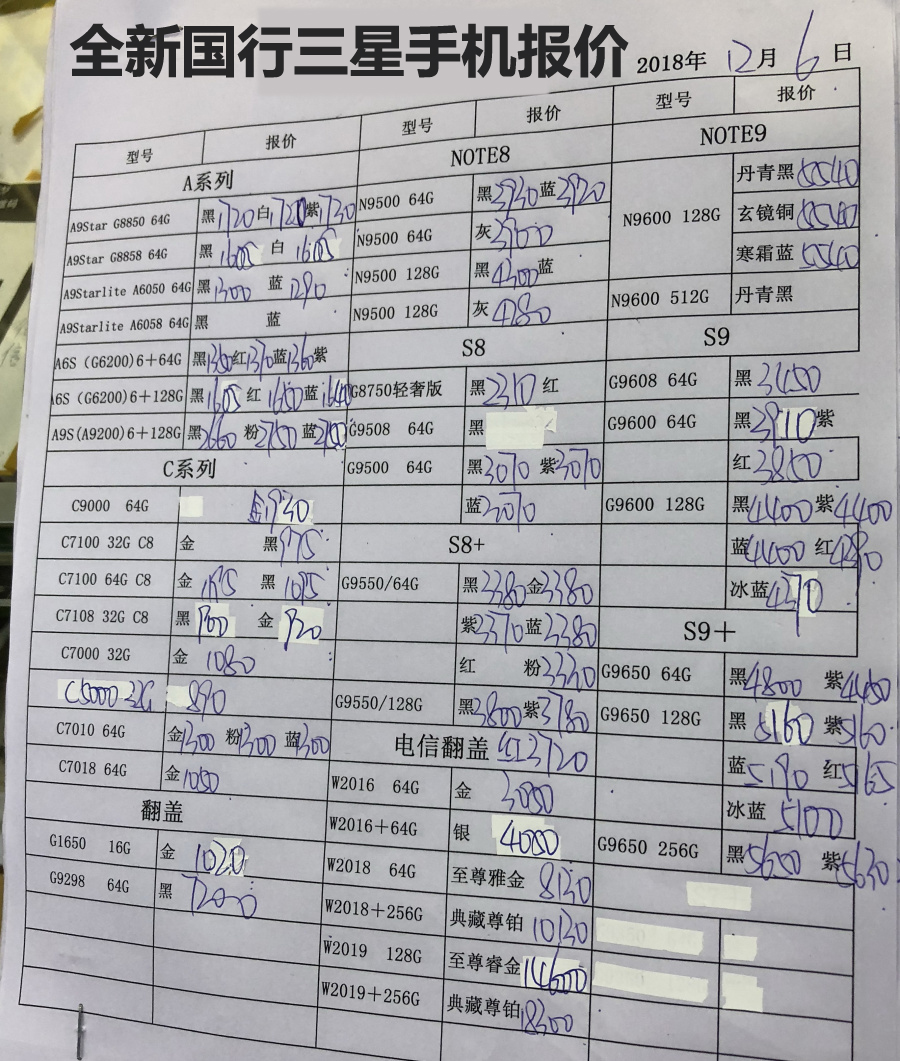 全新国行三星手机报价
2018年 12月 6日
型号 报价 型号 报价 型号 报价
A系列
A9Star G8850 64G 黑1720白1720紫1730
A9Star G8858 64G 黑 1605 白 1605
A9Starlite A6050 64G 黑1300 蓝 1290
A9Starlite A6058 64G 黑 蓝
A6S (G6200)6+64G 黑1350红1370蓝1360紫
A6S (G6200)6+128G 黑1605 红 1650蓝1640
A9S(A9200)6+128G 黑2660 粉2750 蓝2750
C系列
C9000 64G 金1930
C7100 32G C8 金 黑975
C7100 64G C8 金 黑 1095
C7108 32G C8 黑 900 金 920
C7000 32G 金 1080
C5000 32G 890
C7010 64G 金1300 粉1300 蓝1300
C7018 64G 金1050
翻盖
G1650 16G 金 1020
G9298 64G 黑 7200
NOTE8
N9500 64G 黑3930蓝3920
N9500 64G 灰3900
N9500 128G 黑4300蓝
N9500 128G 灰4280
S8
G8750轻奢版 黑2310 红
G9508 64G 黑
G9500 64G 黑3070 紫3070
蓝3070
S8+
G9550/64G 黑3380金3380
紫3370蓝3380
红 粉3330
G9550/128G 黑3800紫3780
电信翻盖 红3720
W2016 64G 金 3080
W2016+64G 银 4080
W2018 64G 至尊雅金 8130
W2018+256G 典藏尊铂 10130
W2019 128G 至尊睿金14600
W2019+256G 典藏尊铂18300
NOTE9
N9600 128G 丹青黑5540
玄镜铜5540
寒霜蓝5540
N9600 512G 丹青黑
S9
G9608 64G 黑 3450
G9600 64G 黑3910紫
红3850
G9600 128G 黑4400紫4400
蓝4400 红4290
冰蓝4370
S9+
G9650 64G 黑4800 紫4450
G9650 128G 黑 5160 紫5160
蓝5190 红5165
冰蓝 5100
G9650 256G 黑5600 紫5630